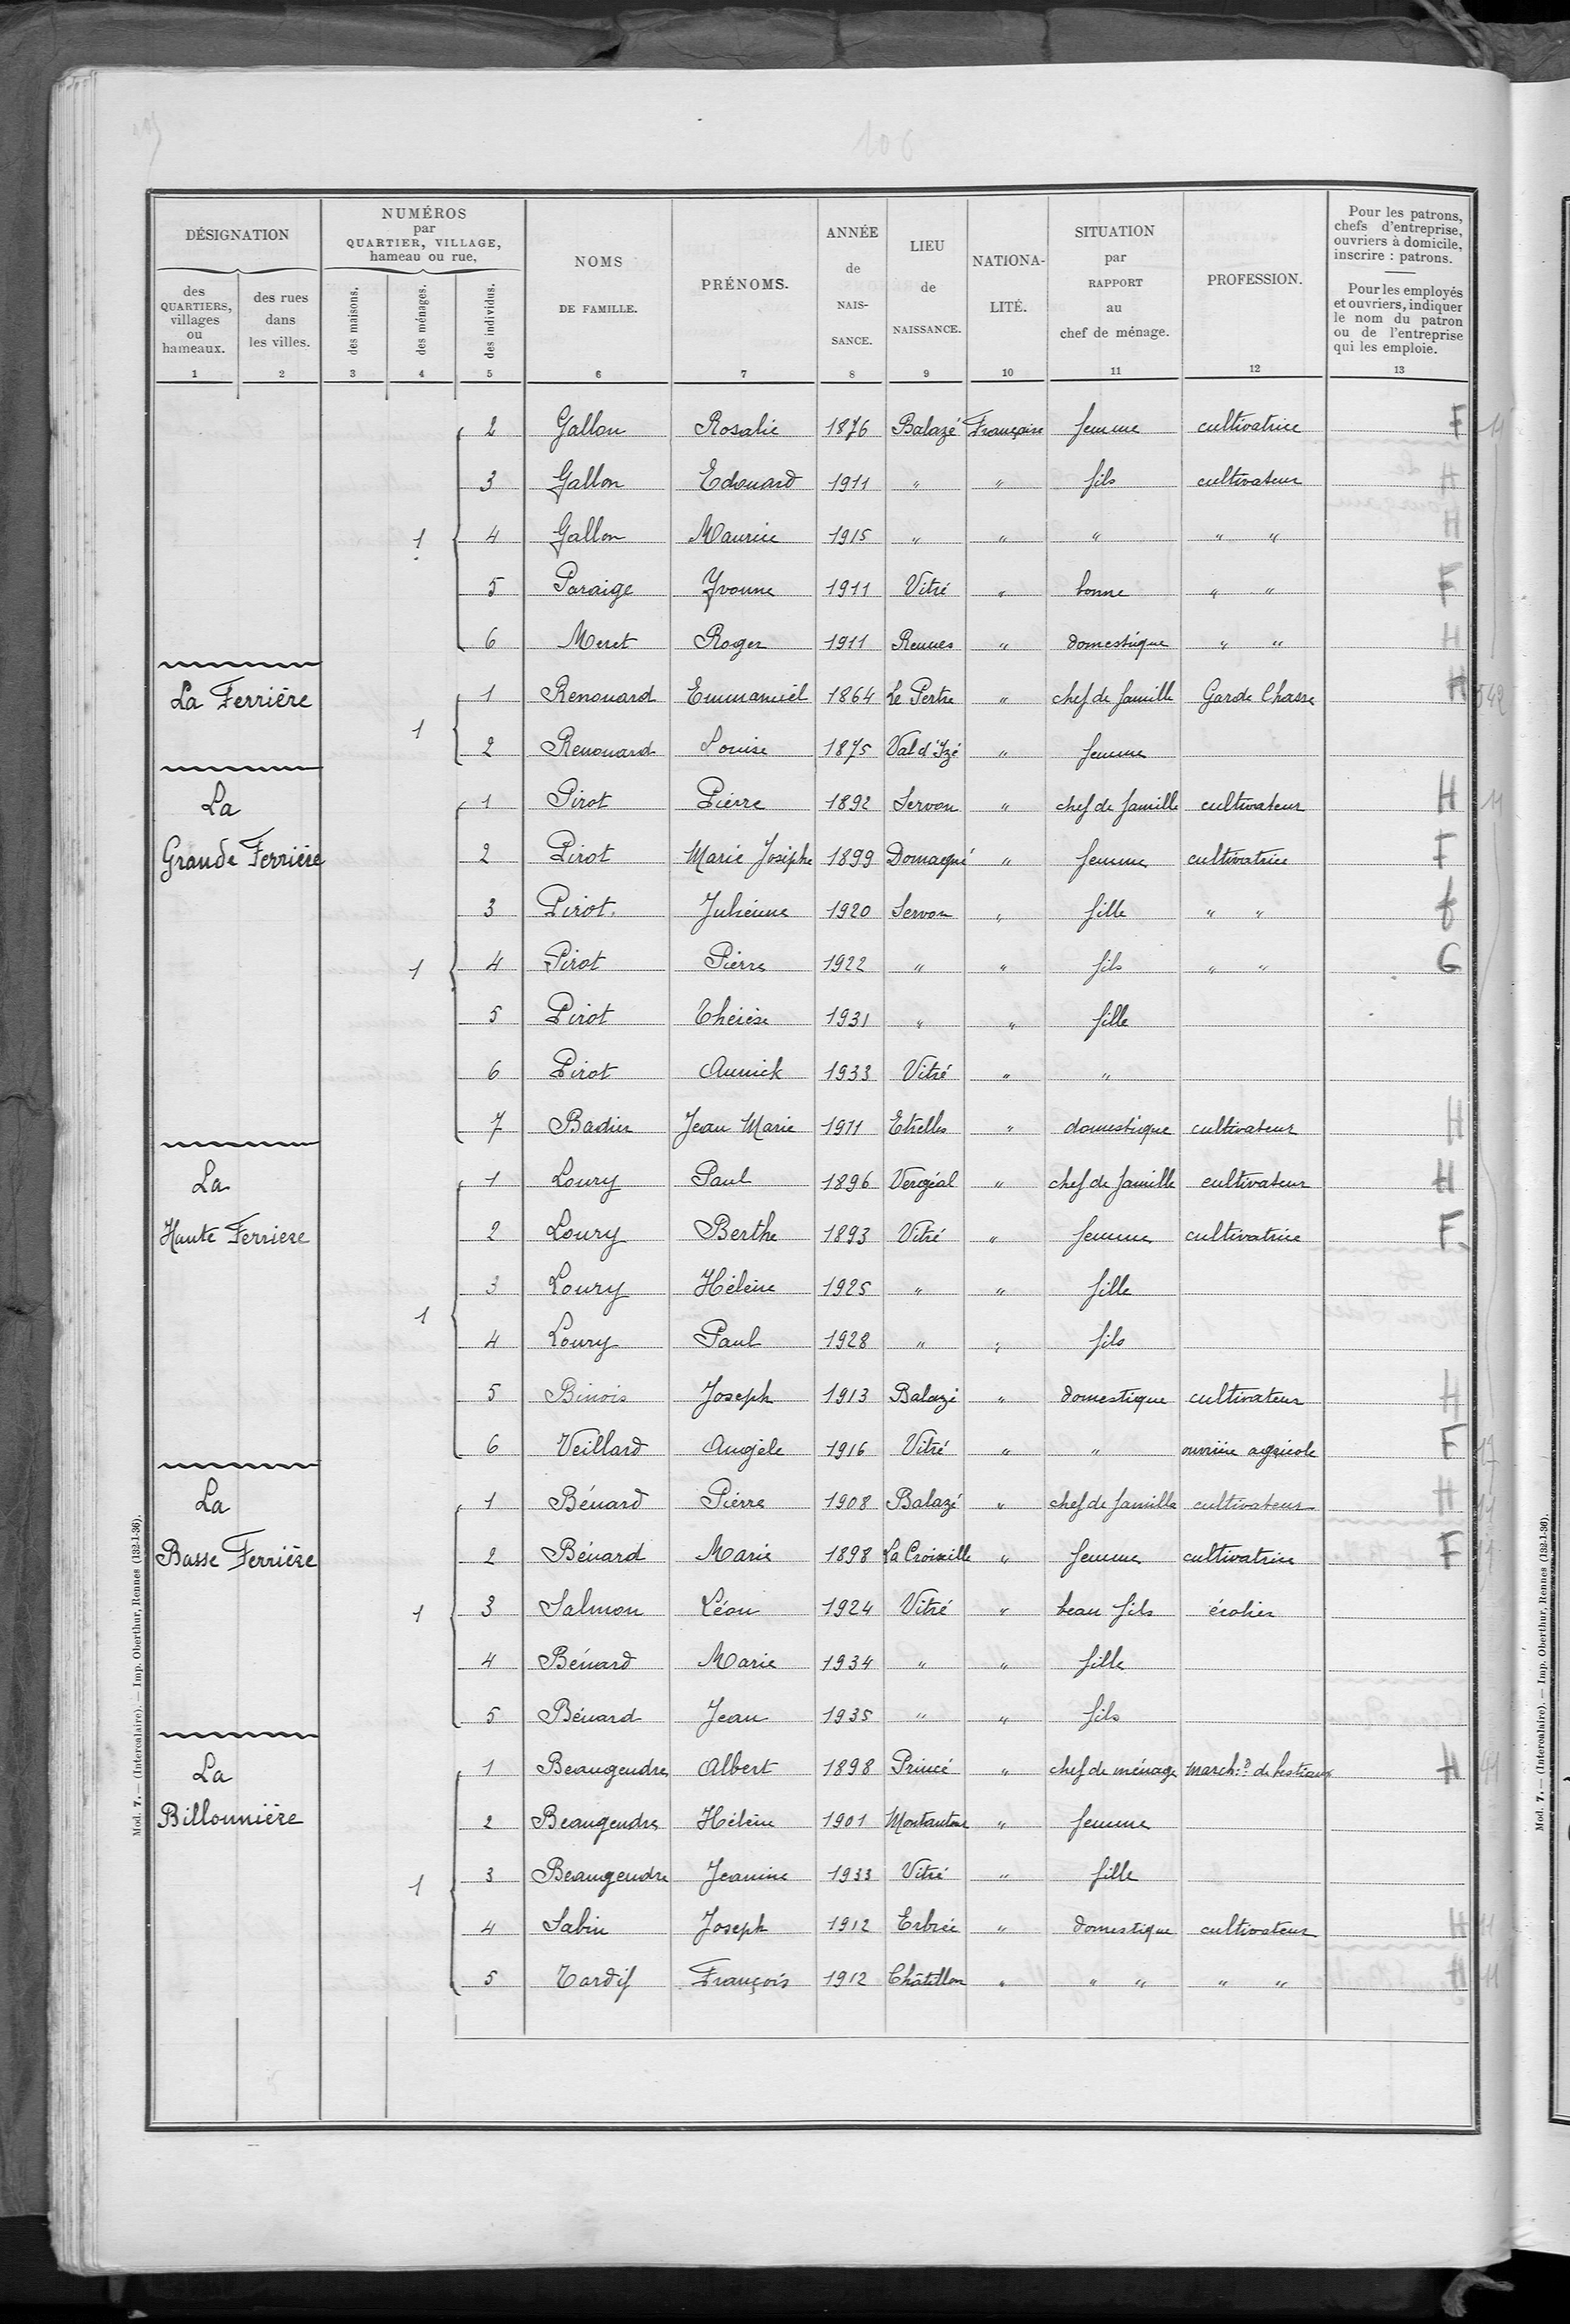 106
DÉSIGNATION
des QUARTIERS, villages ou hameaux.
des rues dans les villes.
NUMÉROS par QUARTIER, VILLAGE, hameau ou rue,
des maisons.
des ménages.
des individus.
NOMS DE FAMILLE.
PRÉNOMS.
ANNÉE de NAIS-SANCE.
LIEU de NAISSANCE.
NATIONA-LITÉ.
SITUATION par RAPPORT au chef de ménage.
PROFESSION.
Pour les patrons, chefs d'entreprise, ouvriers à domicile, inscrire : patrons.
Pour les employés et ouvriers, indiquer le nom du patron ou de l'entreprise qui les emploie.
1 2 3 4 5 6 7 8 9 10 11 12 13
2 Gallon Rosalie 1876 Balazé Française femme cultivatrice F 11
3 Gallon Edouard 1911 " " fils cultivateur H
1 4 Gallon Maurice 1915 " " " " " H
5 Paraige Yvonne 1911 Vitré " bonne " " F
6 Meret Roger 1911 Rennes " domestique " " H
La Ferrière 1 Renouard Emmanuel 1864 Le Pertre " chef de famille Garde Chasse H 542
1 2 Renouard Louise 1875 Val d'Izé " femme
La 1 Pirot Pierre 1892 Servon " chef de famille cultivateur H 11
Grande Ferrière 2 Pirot Marie Josèphe 1899 Domagné " femme cultivatrice F
3 Pirot Julienne 1920 Servon " fille " " f
1 4 Pirot Pierre 1922 " " fils " " G
5 Pirot Thérèse 1931 " " fille
6 Pirot Annick 1933 Vitré " "
7 Badier Jean Marie 1911 Etrelles " domestique cultivateur H
La 1 Loury Paul 1896 Vergéal " chef de famille cultivateur H
Haute Ferriere 2 Loury Berthe 1893 Vitré " femme cultivatrice F
3 Loury Hélène 1925 " " fille
1 4 Loury Paul 1928 " " fils
5 Binois Joseph 1913 Balazé " domestique cultivateur H
6 Veillard Angèle 1916 Vitré " " ouvrière agricole F 12
La 1 Bénard Pierre 1908 Balazé " chef de famille cultivateur H 11
Basse Ferrière 2 Bénard Marie 1898 La Croixille " femme cultivatrice F
1 3 Salmon Léon 1924 Vitré " beau fils écolier
4 Bénard Marie 1934 " " fille
5 Bénard Jean 1935 " " fils
La 1 Beaugendre Albert 1898 Princé " chef de ménage march:d de bestiaux H 41
Billonnière 2 Beaugendre Hélène 1901 Montautour " femme
1 3 Beaugendre Jeanine 1933 Vitré " fille
4 Sabin Joseph 1912 Erbrée " domestique cultivateur H 11
5 Tardif François 1912 Châtillon " " " " " H 11
Mod. 7. — (Intercalaire). — Imp. Oberthur, Rennes (132-1-36).
Mod. 7. — (Intercalaire). — Imp. Oberthur, Rennes (132-1-36).